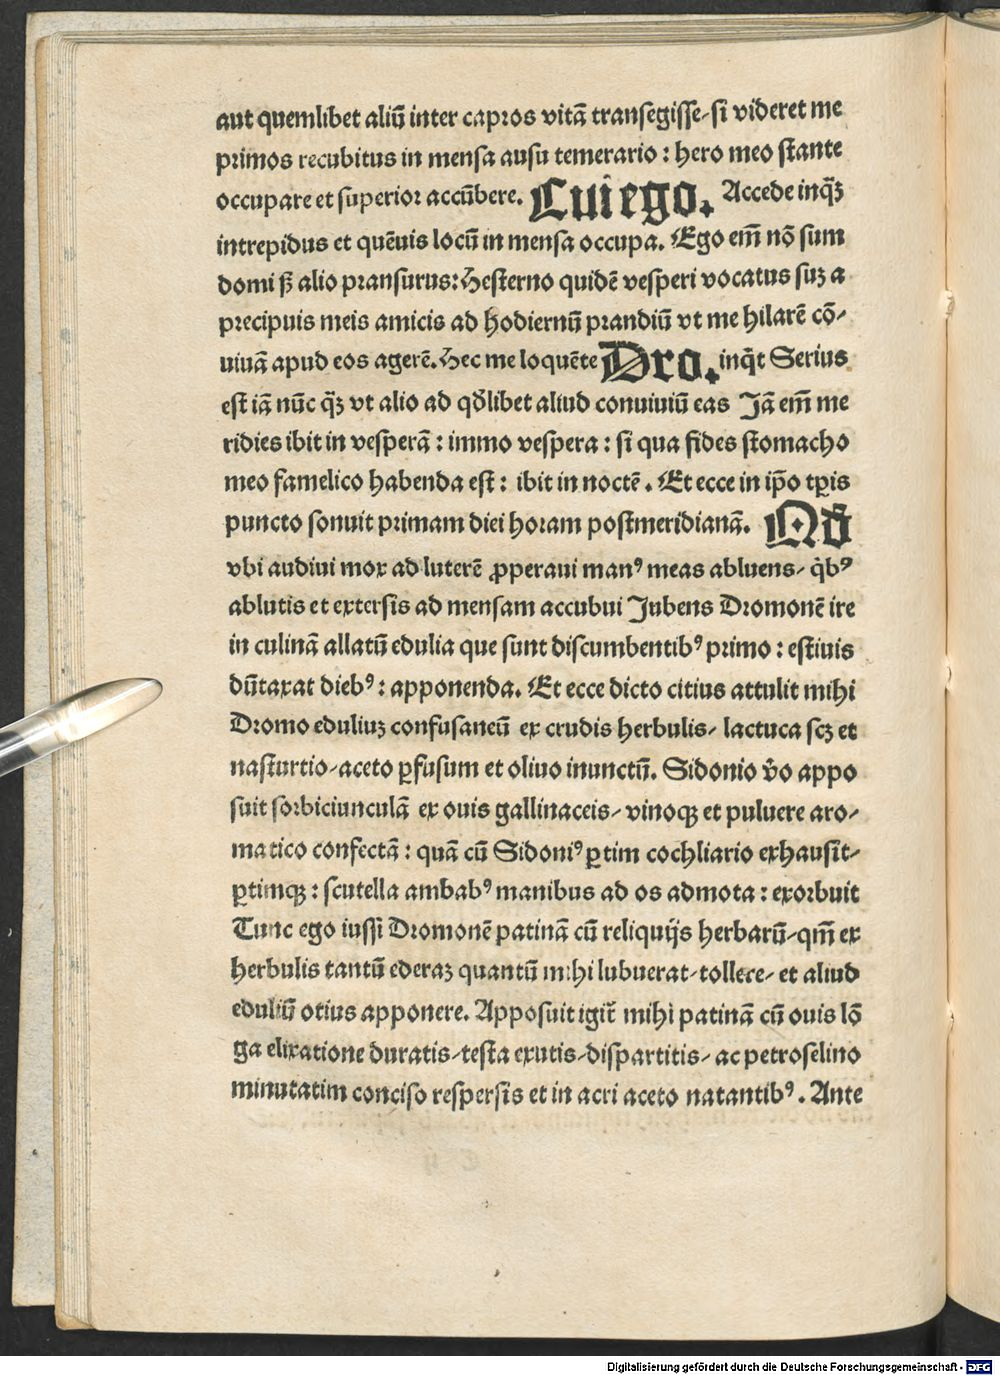 aut quemlibet aliū inter capros vitā transegisse/ si videret me
primos recubitus in mensa ausu temerario : hero meo stante
occupare et superior accūbere. Cui ego. Accede inq̄ꝫ
intrepidus et quēuis locū in mensa occupa. Ego em̄ nō sum
domi sꝫ alio pransurus: Hesterno quidē vesperi vocatus suꝫ a
precipuis meis amicis ad hodiernū prandiū vt me hilarē cō/
uiuā apud eos agerē. Hec me loquēte Dro. inq̄t Serius
est iā nūc q̄ꝫ vt alio ad qđlibet aliud conuiuiū eas Jā em̄ me
ridies ibit in vesperā : immo vespera : si qua fides stomacho
meo famelico habenda est : ibit in noctē . Et ecce in ip̄o tꝑis
puncto sonuit primam diei horam postmeridianā. Qđ
vbi audiui mox ad luterē ꝓperaui manꝰ meas abluens/ q̄bꝰ
ablutis et extersis ad mensam accubui Jubens Dromonē ire
in culinā allatū edulia que sunt discumbentibꝰ primo : estiuis
dūtaxat diebꝰ : apponenda. Et ecce dicto citius attulit mihi
Dromo eduliuꝫ confusaneū ex crudis herbulis/ lactuca scꝫ et
nasturtio/ aceto ꝑfusum et oliuo inunctū. Sidonio v̄o appo
suit sorbiciunculā ex ouis gallinaceis/ vinoqꝫ et puluere aro/
matico confectā : quā cū Sidoniꝰ ꝑtim cochliario exhausit/
ꝑtimqꝫ : scutella ambabꝰ manibus ad os admota : exorbuit
Tunc ego iussi Dromonē patinā cū reliquijs herbarū/ qm̄ ex
herbulis tantū ederaꝫ quantū mihi lubuerat/ tollere/ et aliud
eduliū otius apponere. Apposuit igit̄ mihi patinā cū ouis lō
ga elixatione duratis/ testa exutis/ dispartitis/ ac petroselino
minutatim conciso respersis et in acri aceto natantibꝰ . Ante
Digitalisierung gefördert durch die Deutsche Forschungsgemeinschaft - DFG